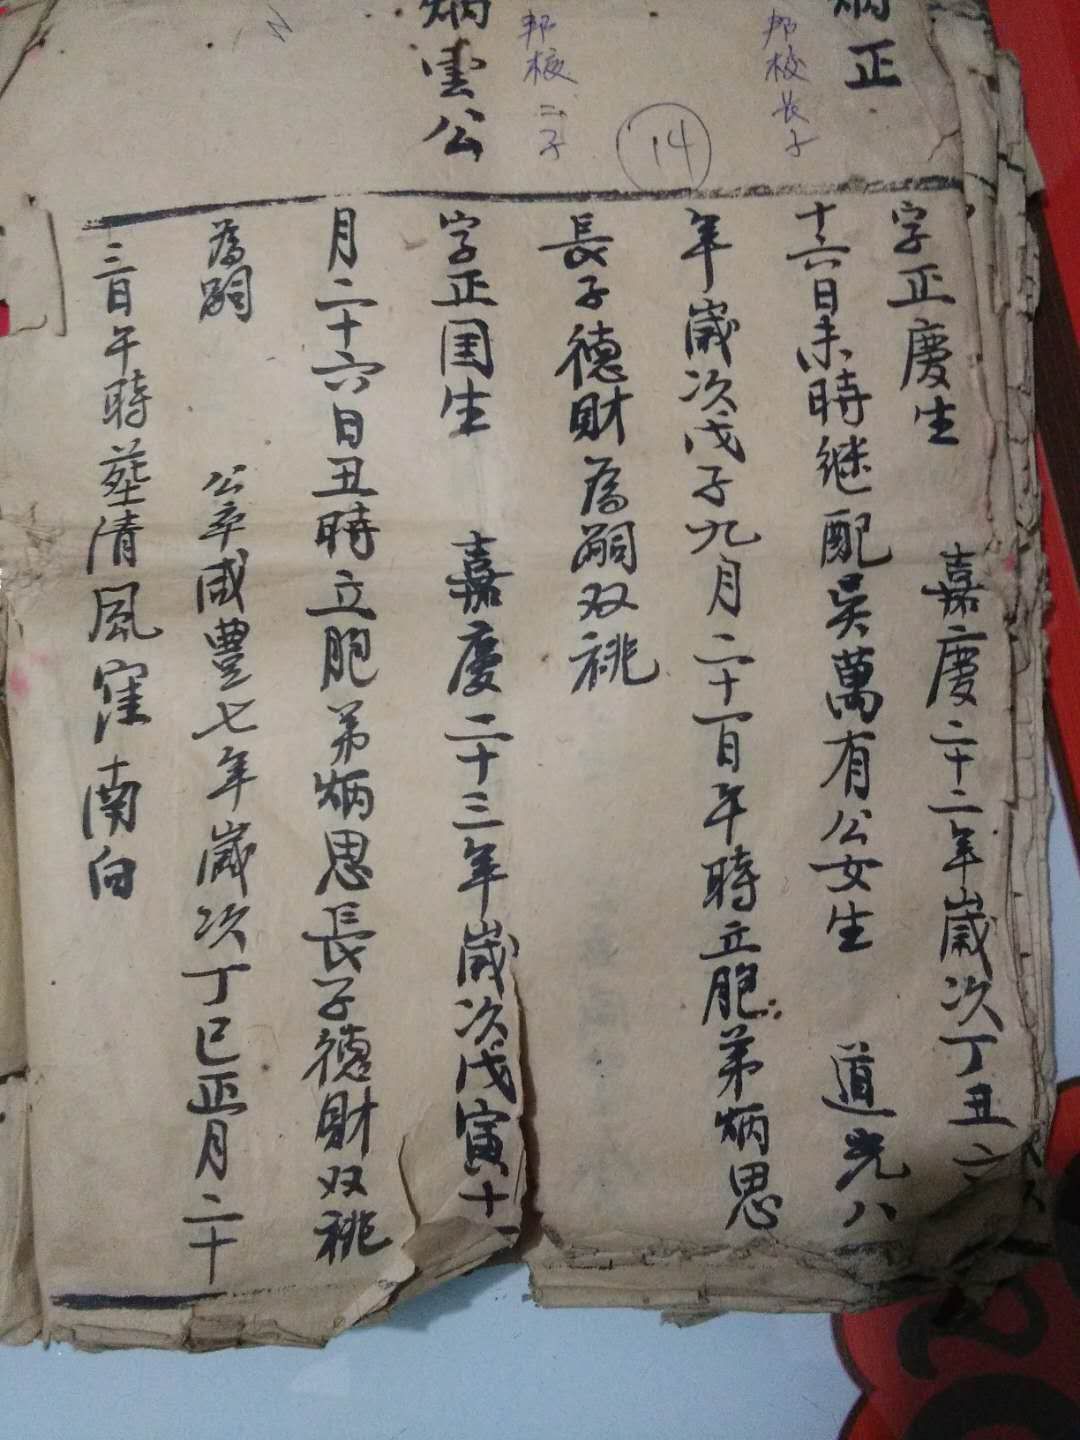 炳正
邦校長子
14
炳雲公
邦校二子
字正慶生 嘉慶二十二年歲次丁丑六
十六日未時继配吴萬有公女生 道光八
年歲次戊子九月二十一日午時立胞弟炳思
長子德財為嗣双祧
字正国生 嘉慶二十三年歲次戊寅十一
月二十六日丑時立胞弟炳思長子德財双祧
為嗣 公卒咸豐七年歲次丁巳正月二十
三日午時塟清風窪南向